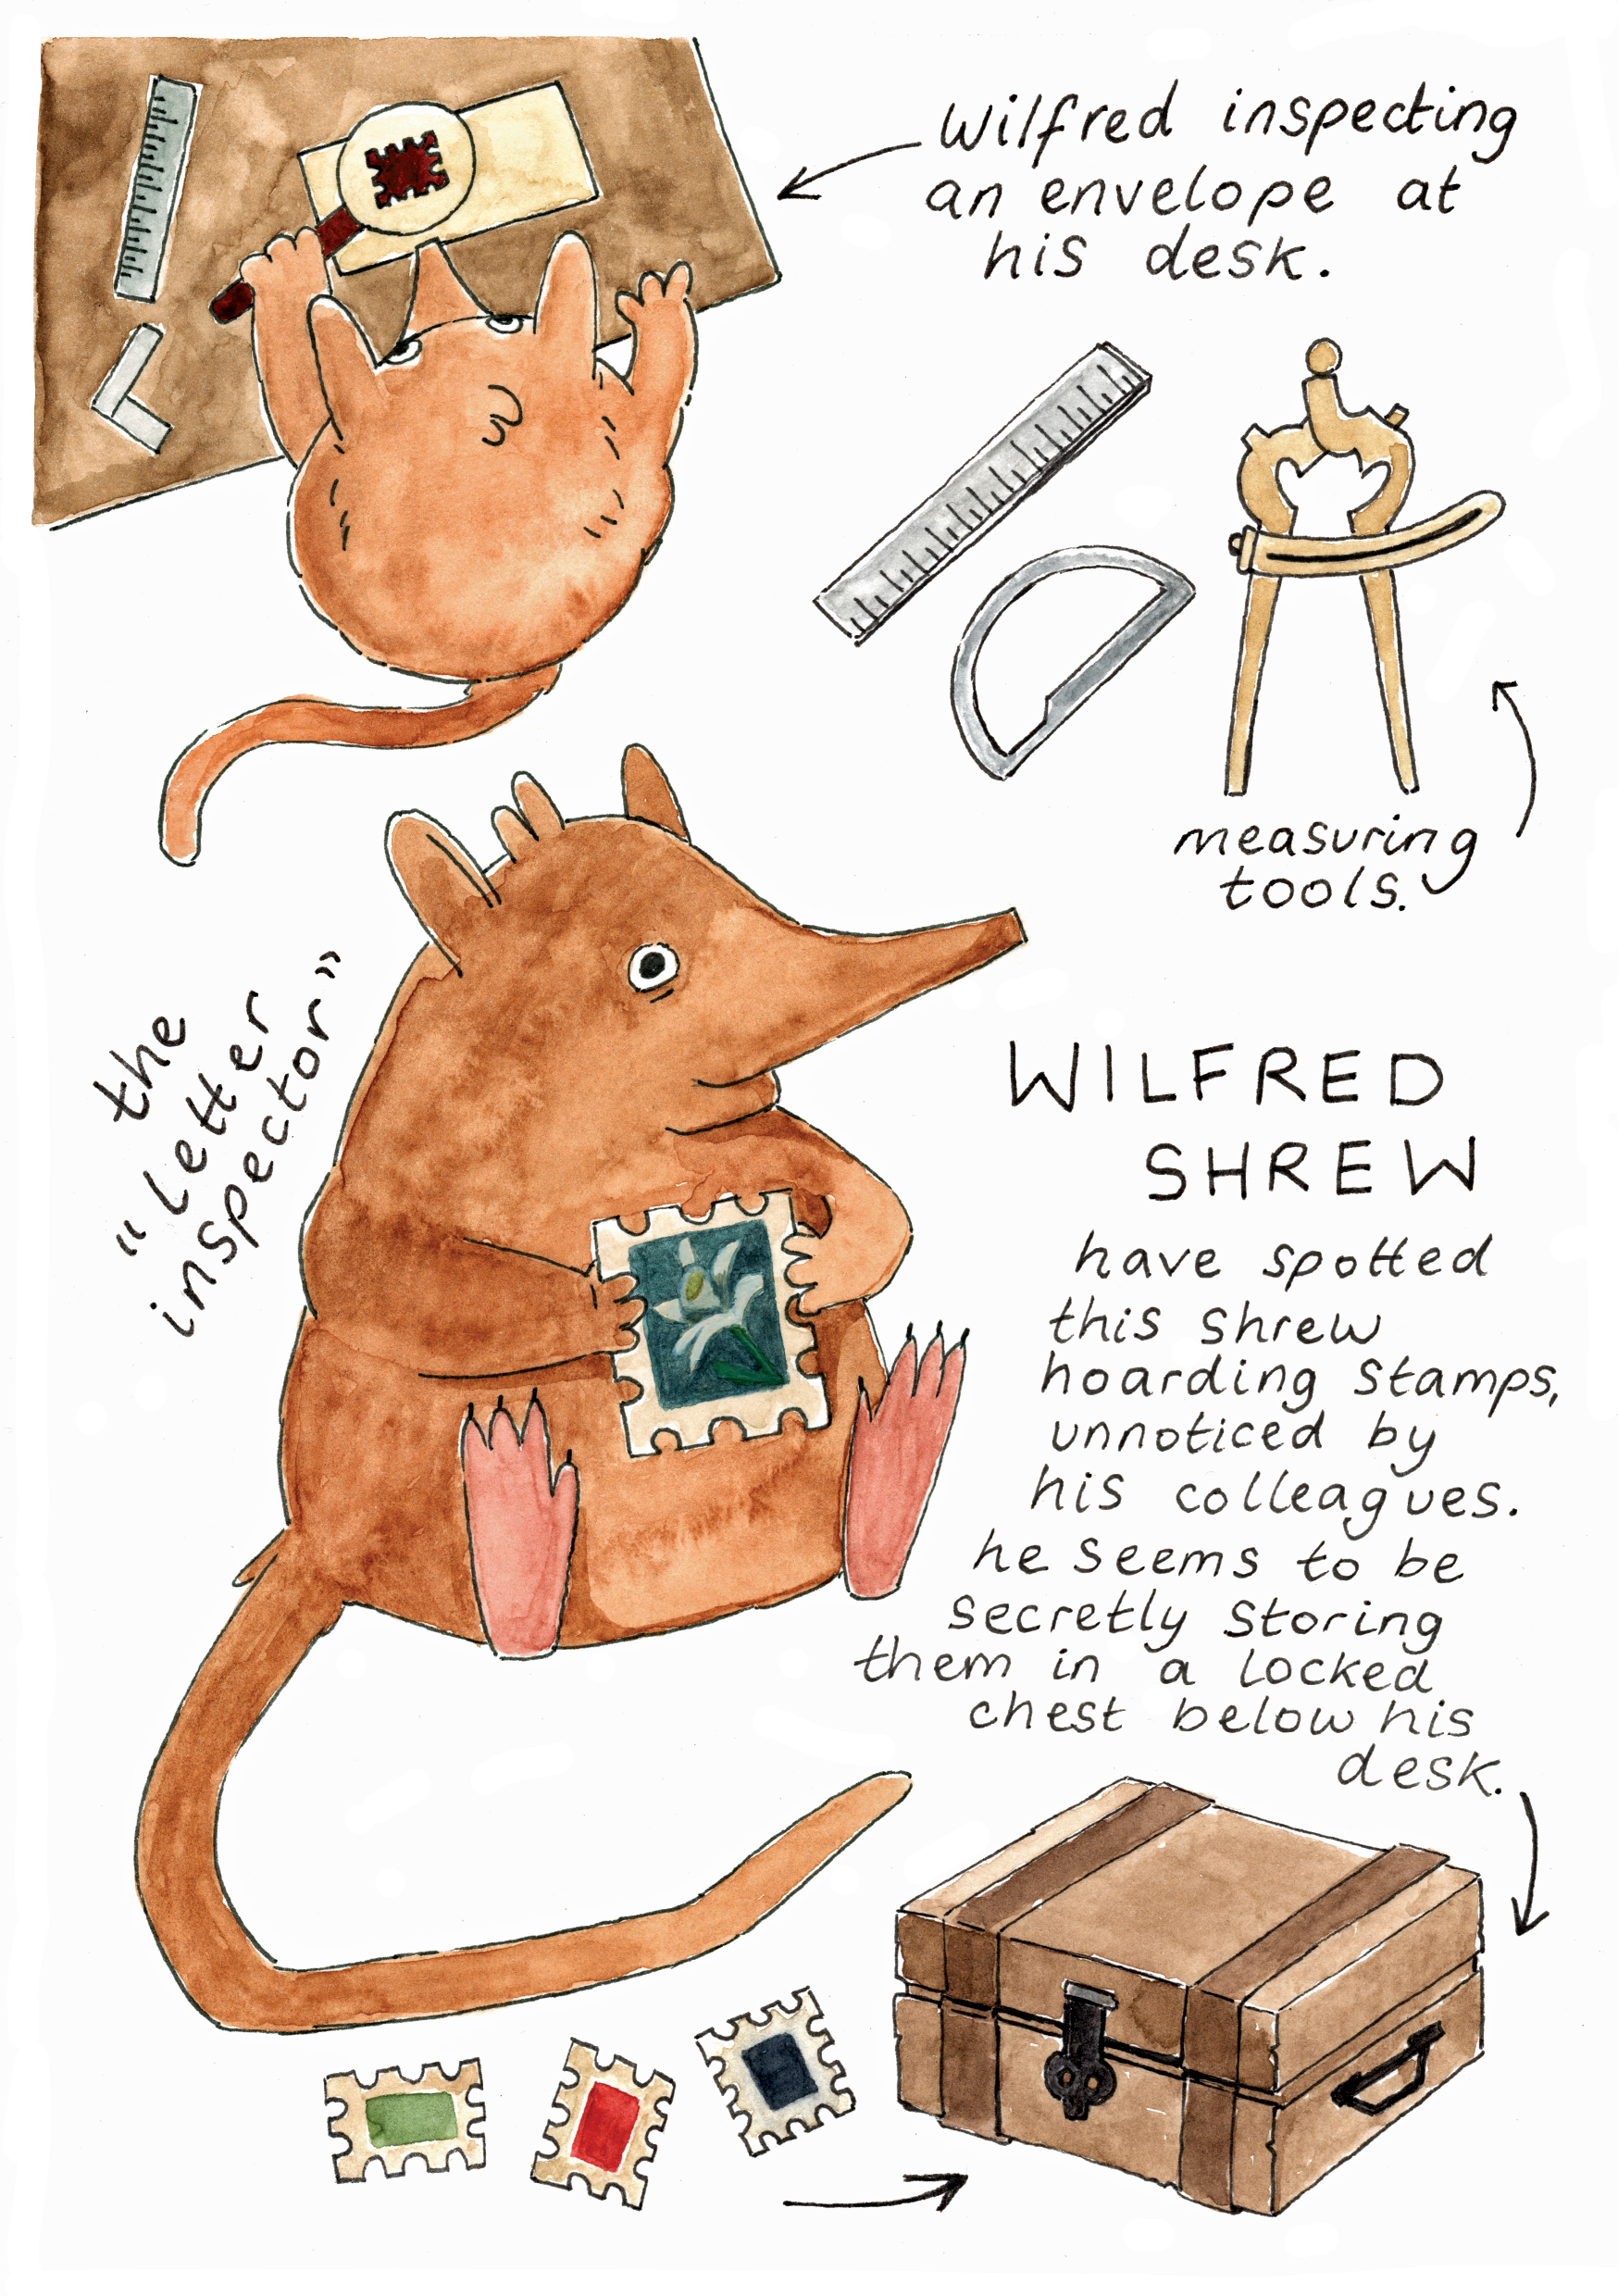 Wilfred inspecting
an envelope at
his desk.
measuring
tools.
the
"letter
inspector"
WILFRED
SHREW
have spotted
this shrew
hoarding stamps,
unnoticed by
his colleagues.
he seems to be
secretly storing
them in a locked
chest below his
desk.